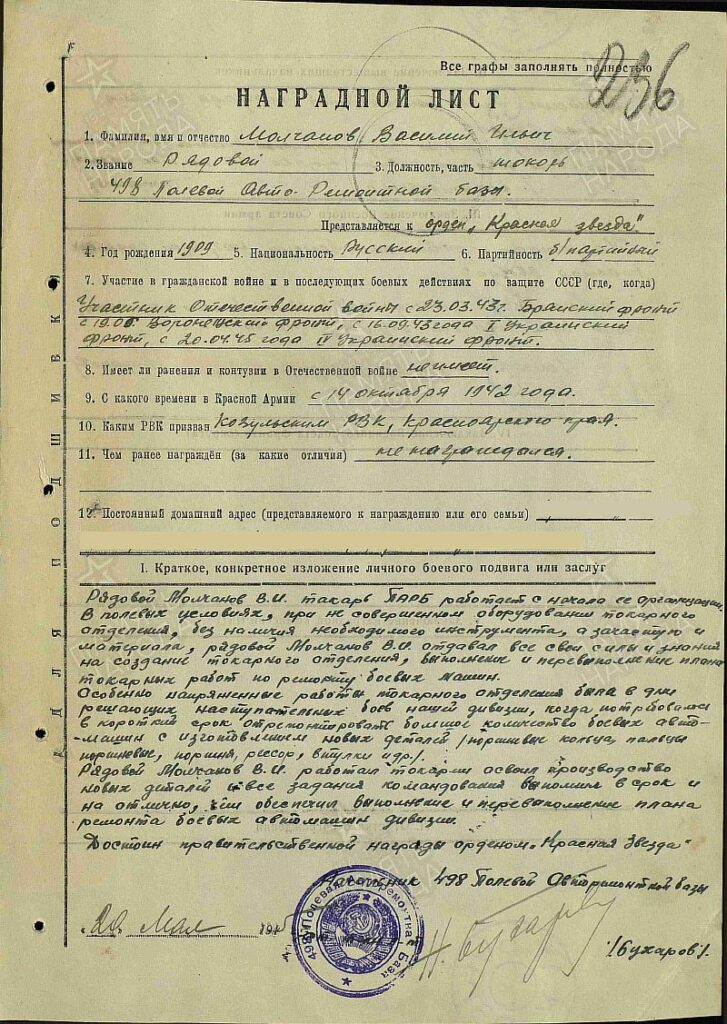 Все графы заполнять полностью
НАГРАДНОЙ ЛИСТ
1. Фамилия, имя и отчество Молчанов Василий Ильич
2. Звание Рядовой 3. Должность, часть токорь
498 Полевой Авто-Ремонтной базы.
Представляется к орден „Красная звезда"
4. Год рождения 1909 5. Национальность Русский 6. Партийность б/партийный
7. Участие в гражданской войне и в последующих боевых действиях по защите СССР (где, когда)
Участник Отечественной войны с 23.03.43г. Брянский фронт
с 19.05 Воронежский фронт, с 16.09.43 года I Украинский
фронт, с 20.04.45 года IV Украинский фронт.
8. Имеет ли ранения и контузии в Отечественной войне неимеет.
9. С какого времени в Красной Армии с 14 октября 1942 года.
10. Каким РВК призван Козульским РВК, Красноярского края.
11. Чем ранее награждён (за какие отличия) ненаграждался.
12. Постоянный домашний адрес (представляемого к награждению или его семьи)
I. Краткое, конкретное изложение личного боевого подвига или заслуг
Рядовой Молчанов В.И. токарь ПАРБ работает с начала ее организации.
В полевых условиях, при не совершенном оборудовании токарного
отделения, без наличия необходимого инструмента, а зачастую и
материала, рядовой Молчанов В.И. отдавал все свои силы и знания
на создание токарного отделения, выполнение и перевыполнение плана
токарных работ по ремонту боевых машин.
Особенно напряженные работы токарного отделения была в дни
решающих наступательных боев нашей дивизии, когда потребовалось
в короткий срок отремонтировать большое количество боевых авто-
-машин с изготовлением новых деталей /поршневые кольца, пальцы
поршневые, поршня, рессор, втулки и др./.
Рядовой Молчанов В.И. работая токарем освоил производство
новых деталей и все задания командования выполнял в срок и
на отлично, чем обеспечил выполнение и перевыполнение плана
ремонта боевых автомашин дивизии.
Достоин правительственной награды орденом „Красная Звезда"
Начальник 498 Полевой Авторемонтной базы
Н. Бухаров
/Бухаров/.
20 Мая 1945
498 Полевая Авторемонтная База
ДЛЯ ПОДШИВКИ
ПАМЯТЬ НАРОДА